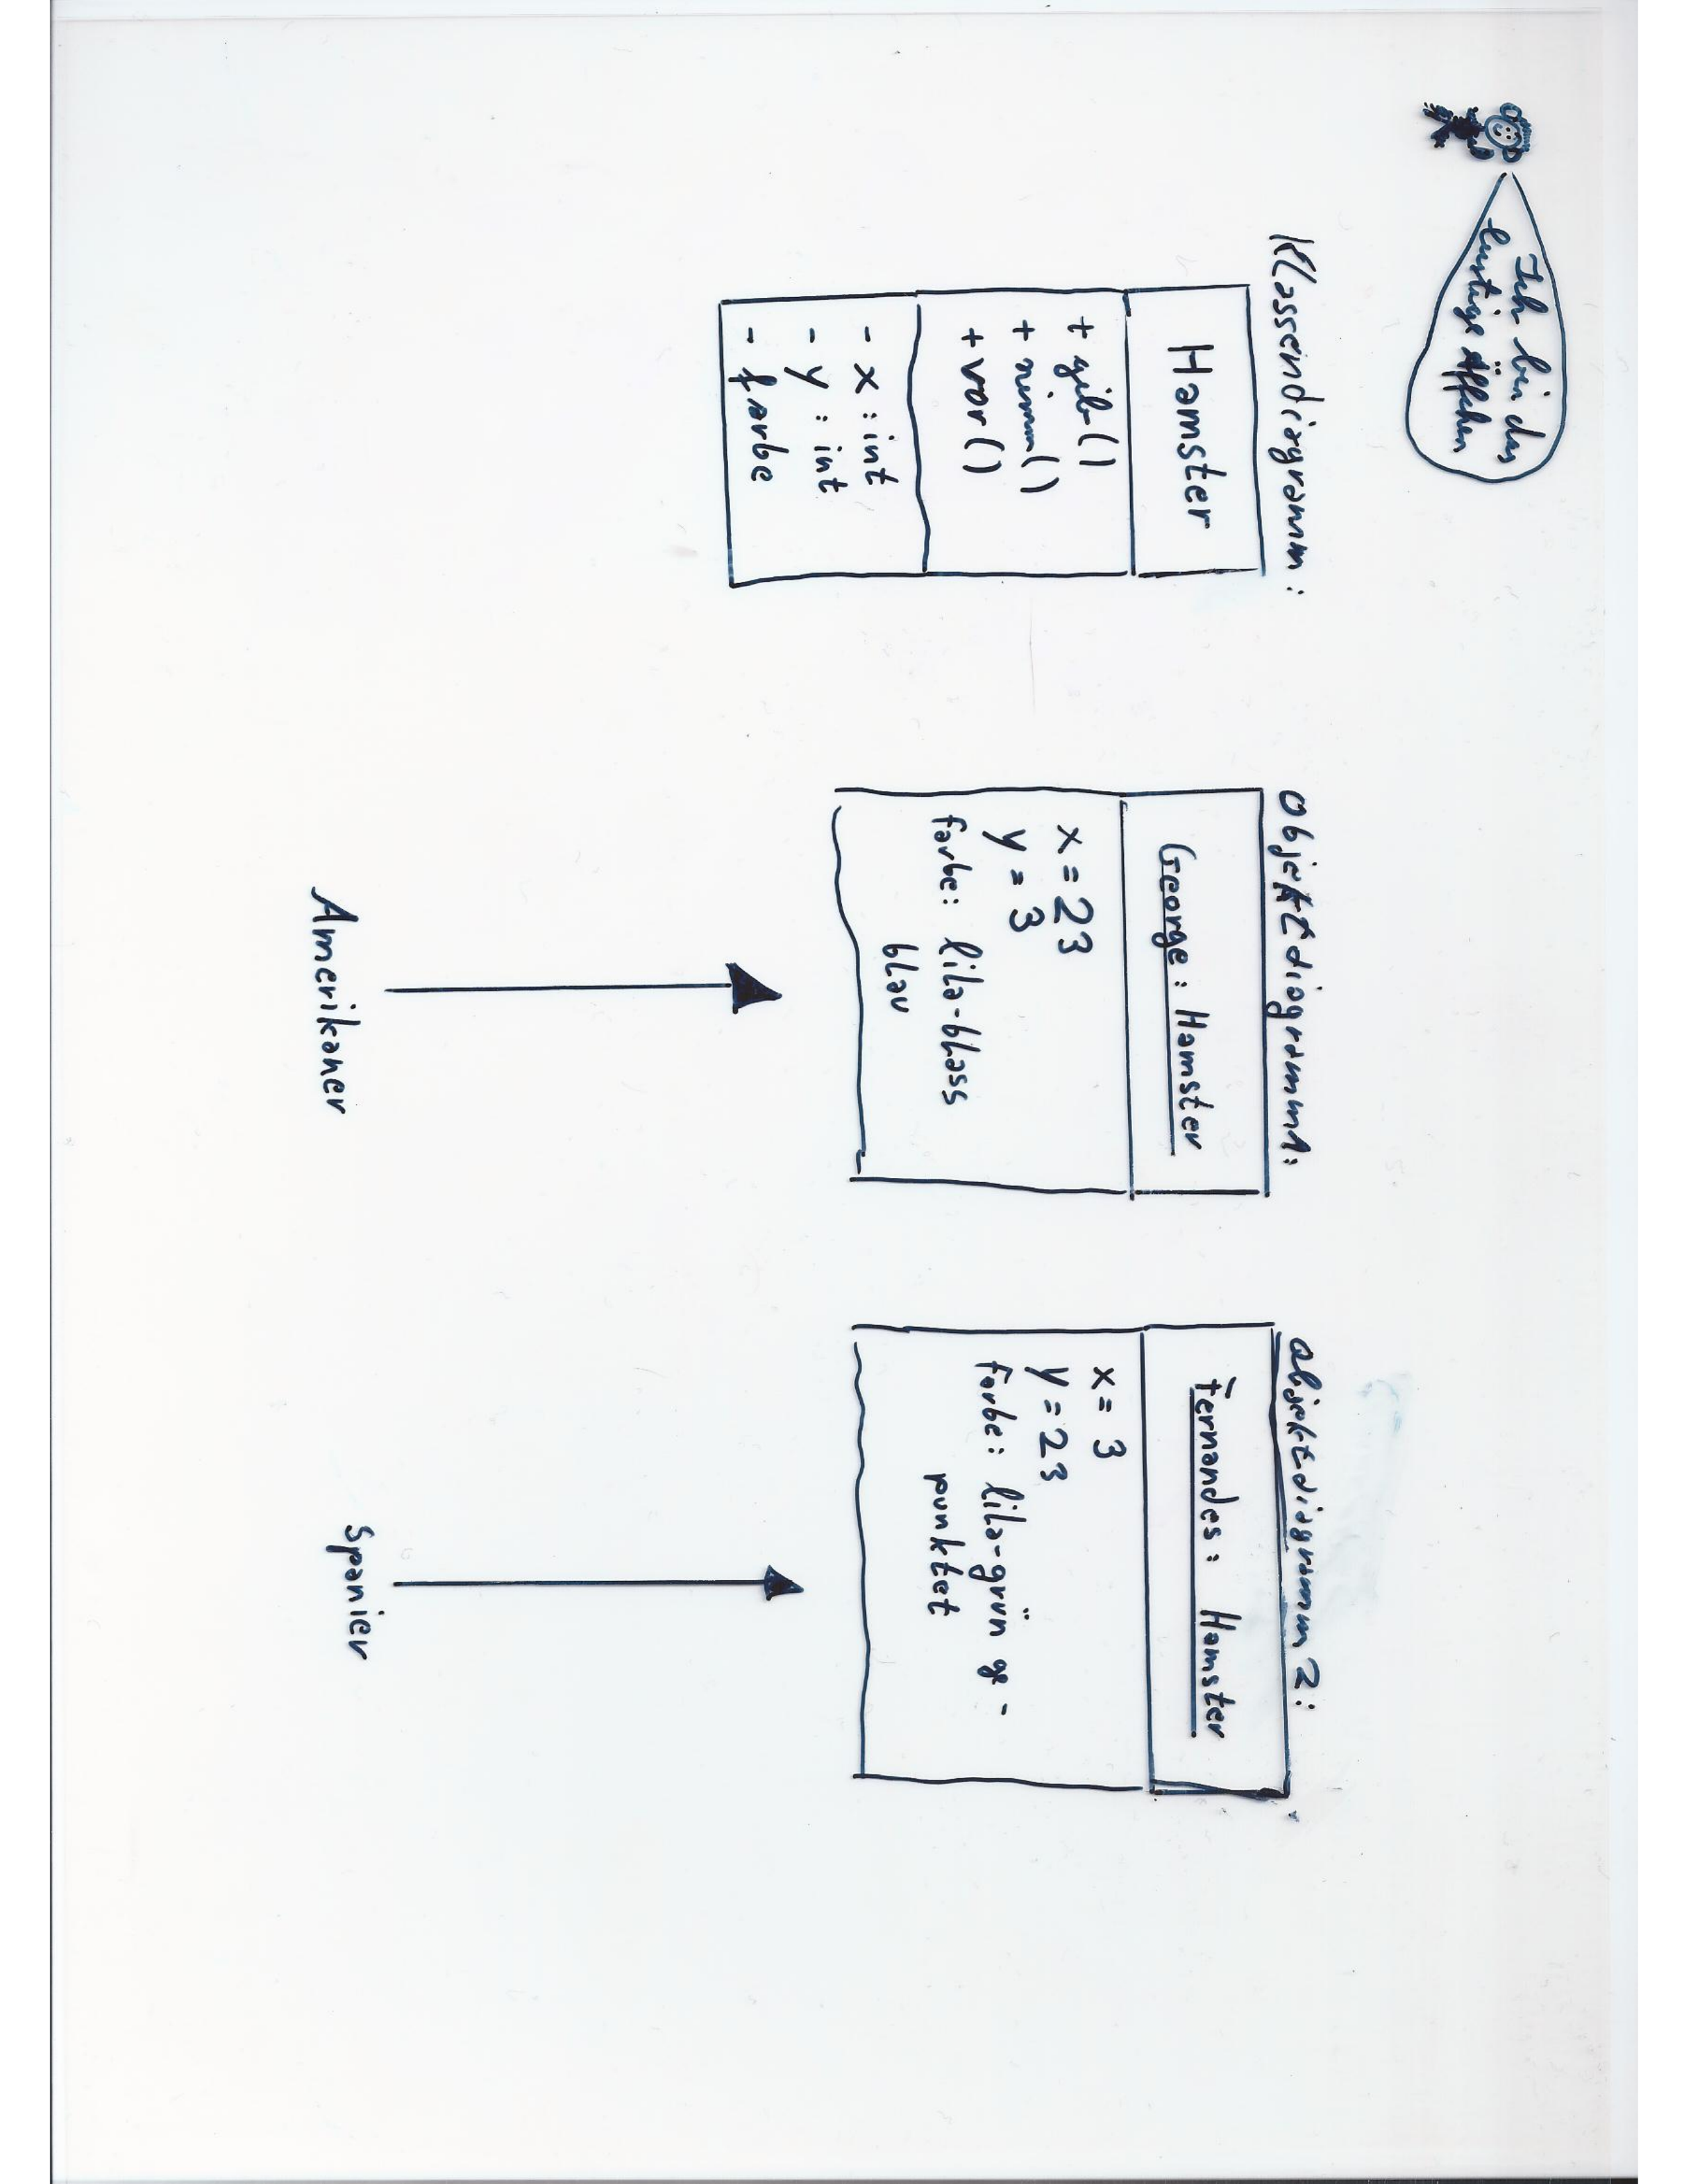 Ich bin das
lustige Äffchen
Klassendiagramm:
Hamster
+ gib()
+ nimm()
+ vor()
- x : int
- y : int
- farbe
Objektdiagramm1:
George : Hamster
x = 23
y = 3
farbe: lila-blass
blau
Amerikaner
Objektdiagramm 2:
Fernandes: Hamster
x = 3
y = 23
farbe: lila-grün ge-
punktet
Spanier